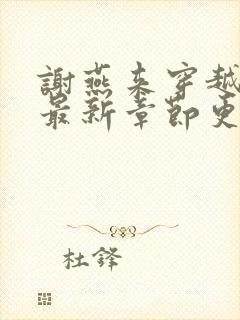 謝燕來穿越
最新章節更
杜鋒